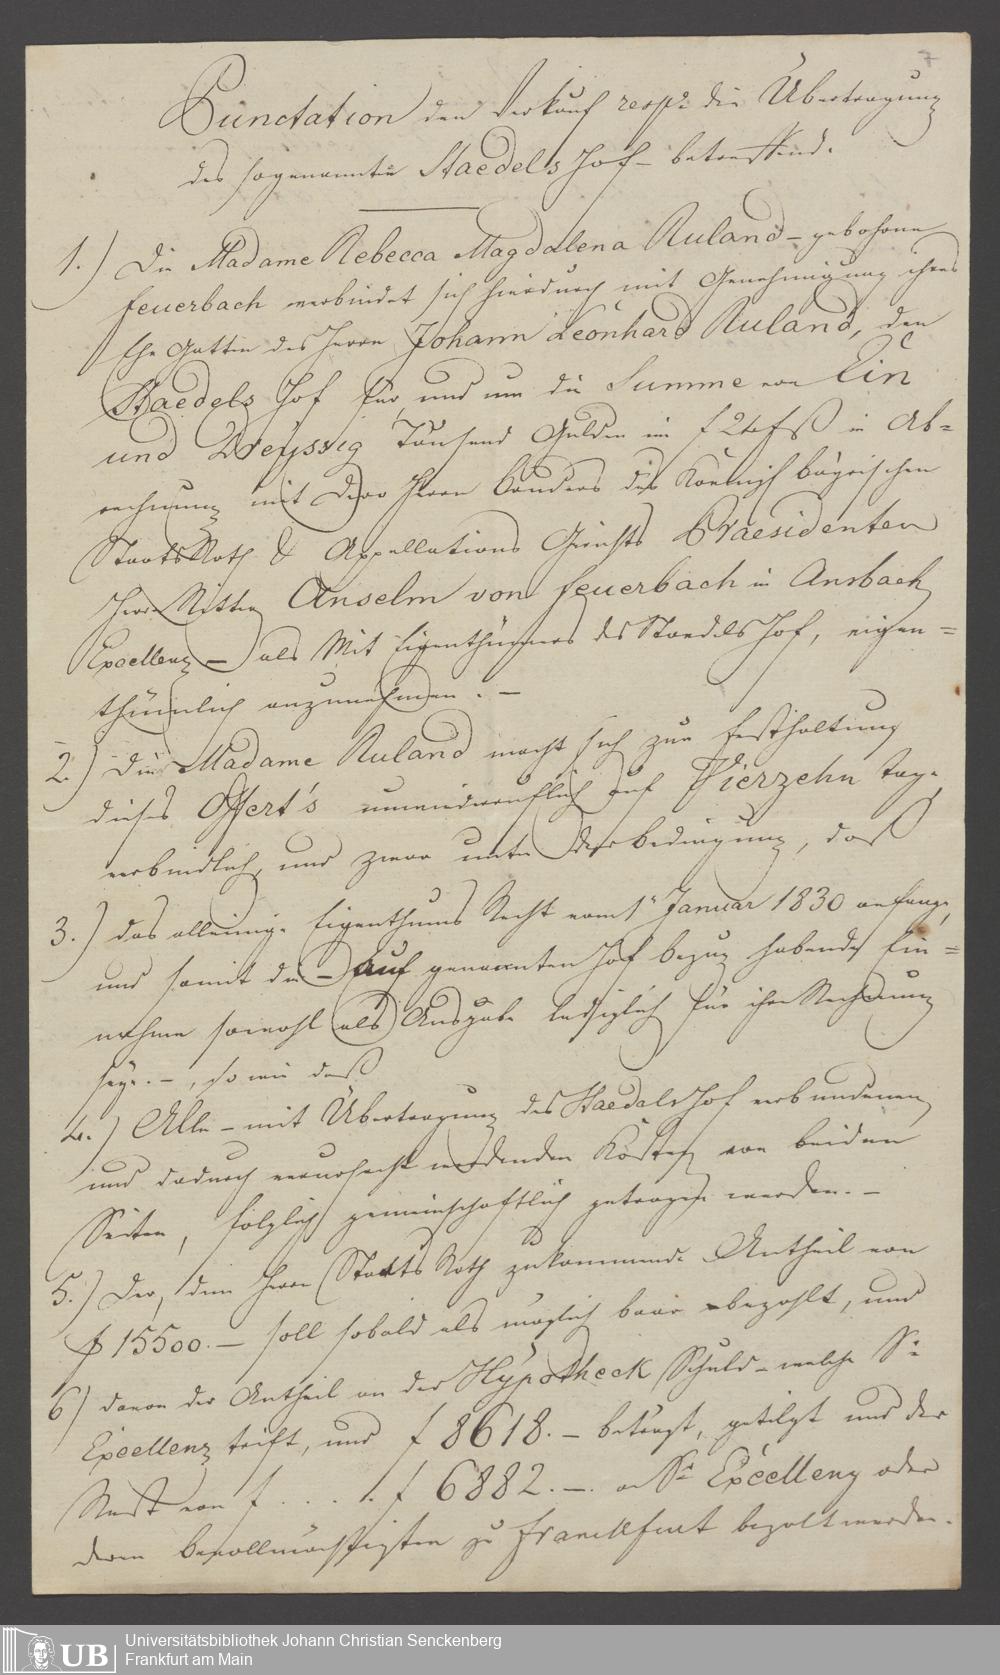 7
Punctation den Verkauf resp: die Übertragung
des sogenannten Staedels Hof – betreffend.
1.) Die Madame Rebecca Magdalena Ruland – gebohrne
Feuerbach verbindet sich hierdurch mit Genehmigung ihres
Ehe Gatten des Herrn Johann Leonhard Ruland, den
Staedels Hof für und um die Summe von Ein
und Dreyssig Tausend Gulden im f 24 fß in Ab=
rechnung mit Dero Herrn Bruders des Königl bayrischen
StaatsRath & Appellations Gerichts Praesidenten
Herrn Ritter Anselm von Feuerbach in Ansbach
Excellenz – als Mit Eigenthümers des Staedels Hof, eigen=
thümlich anzunehmen. –
2.) Die Madame Ruland macht sich zur Festhaltung
dieses Offert's unwiderruflich auf Vierzehn Tage
verbindlich, und zwar unter der Bedingung, daß
3.) das alleinige Eigenthums Recht vom 1n Januar 1830 anfange,
und somit die – auf genannten Hof bezug habende Ein=
nahme sowohl als Ausgabe lediglich für ihre Rechnung
seye. –, so wie daß
4.) Alle – mit Übertragung des Staedels Hof verbundenen
und dadurch verursacht werdenden Kosten von beiden
Seiten, folglich gemeinschaftlich getragen werden. –
5.) Der, dem Herrn Staats Rath zukommende Antheil von
f 15500. – soll sobald als möglich baar bezahlt, und
6) davon der Antheil an der Hypotheck Schuld – welche Se
Excellenz trift, und f 8618. – beträgt, getilgt und der
Rest von f . . . . f 6882. –. an Se Excellenz oder
deren Bevollmächtigten zu Franckfurt bezalt werden.
UB
Universitätsbibliothek Johann Christian Senckenberg
Frankfurt am Main